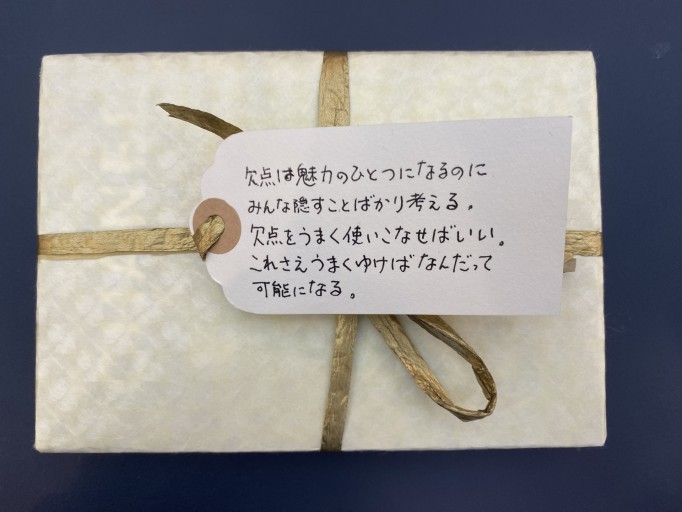 欠点は魅力のひとつになるのに
みんな隠すことばかり考える。
欠点をうまく使いこなせばいい。
これさえうまくゆけばなんだって
可能になる。